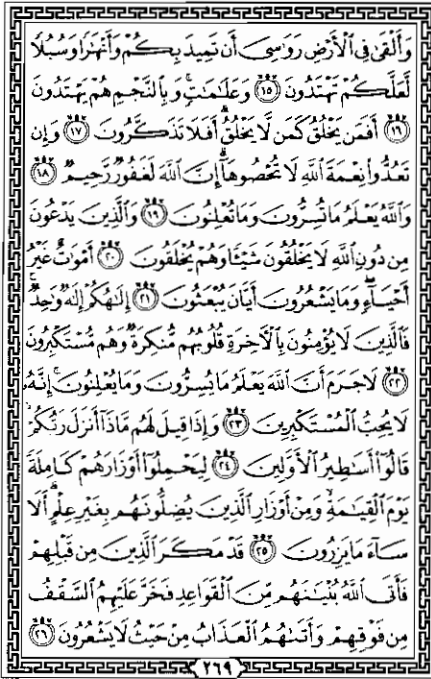 وَأَلْقَىٰ فِى ٱلْأَرْضِ رَوَٰسِىَ أَن تَمِيدَ بِكُمْ وَأَنْهَٰرًا وَسُبُلًا
لَّعَلَّكُمْ تَهْتَدُونَ ١٥ وَعَلَٰمَٰتٍ ۚ وَبِٱلنَّجْمِ هُمْ يَهْتَدُونَ
١٦ أَفَمَن يَخْلُقُ كَمَن لَّا يَخْلُقُ ۗ أَفَلَا تَذَكَّرُونَ ١٧ وَإِن
تَعُدُّوا۟ نِعْمَةَ ٱللَّهِ لَا تُحْصُوهَآ ۗ إِنَّ ٱللَّهَ لَغَفُورٌ رَّحِيمٌ ١٨
وَٱللَّهُ يَعْلَمُ مَا تُسِرُّونَ وَمَا تُعْلِنُونَ ١٩ وَٱلَّذِينَ يَدْعُونَ
مِن دُونِ ٱللَّهِ لَا يَخْلُقُونَ شَيْـًٔا وَهُمْ يُخْلَقُونَ ٢٠ أَمْوَٰتٌ غَيْرُ
أَحْيَآءٍ ۖ وَمَا يَشْعُرُونَ أَيَّانَ يُبْعَثُونَ ٢١ إِلَٰهُكُمْ إِلَٰهٌ وَٰحِدٌ ۚ
فَٱلَّذِينَ لَا يُؤْمِنُونَ بِٱلْـَٔاخِرَةِ قُلُوبُهُم مُّنكِرَةٌ وَهُم مُّسْتَكْبِرُونَ
٢٢ لَا جَرَمَ أَنَّ ٱللَّهَ يَعْلَمُ مَا يُسِرُّونَ وَمَا يُعْلِنُونَ ۚ إِنَّهُۥ
لَا يُحِبُّ ٱلْمُسْتَكْبِرِينَ ٢٣ وَإِذَا قِيلَ لَهُم مَّاذَآ أَنزَلَ رَبُّكُمْ ۙ
قَالُوٓا۟ أَسَٰطِيرُ ٱلْأَوَّلِينَ ٢٤ لِيَحْمِلُوٓا۟ أَوْزَارَهُمْ كَامِلَةً
يَوْمَ ٱلْقِيَٰمَةِ ۙ وَمِنْ أَوْزَارِ ٱلَّذِينَ يُضِلُّونَهُم بِغَيْرِ عِلْمٍ ۗ أَلَا
سَآءَ مَا يَزِرُونَ ٢٥ قَدْ مَكَرَ ٱلَّذِينَ مِن قَبْلِهِمْ
فَأَتَى ٱللَّهُ بُنْيَٰنَهُم مِّنَ ٱلْقَوَاعِدِ فَخَرَّ عَلَيْهِمُ ٱلسَّقْفُ
مِن فَوْقِهِمْ وَأَتَىٰهُمُ ٱلْعَذَابُ مِنْ حَيْثُ لَا يَشْعُرُونَ ٢٦
٢٦٩